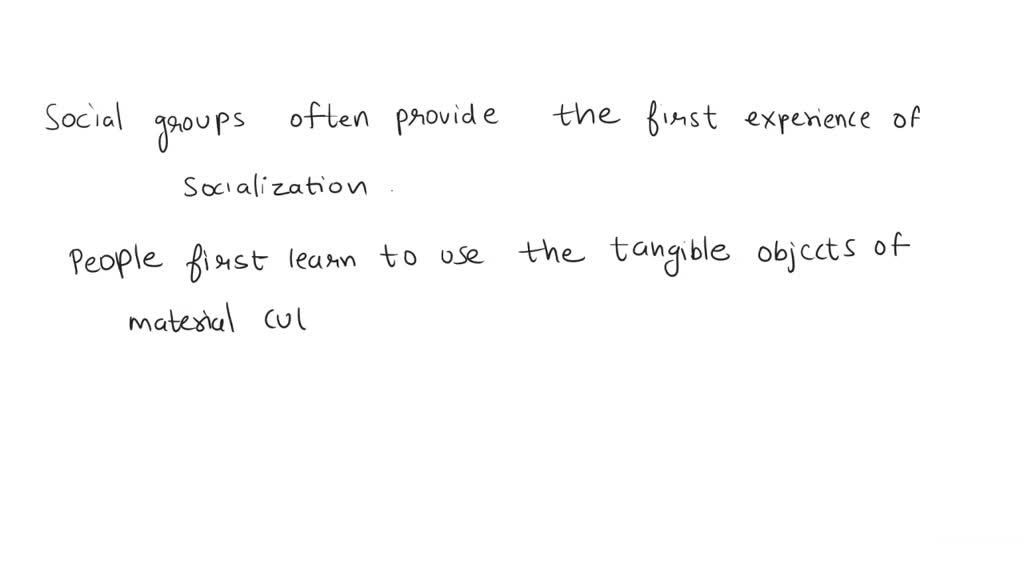 Social groups often provide the first experience of
socialization.
People first learn to use the tangible objects of
material cul